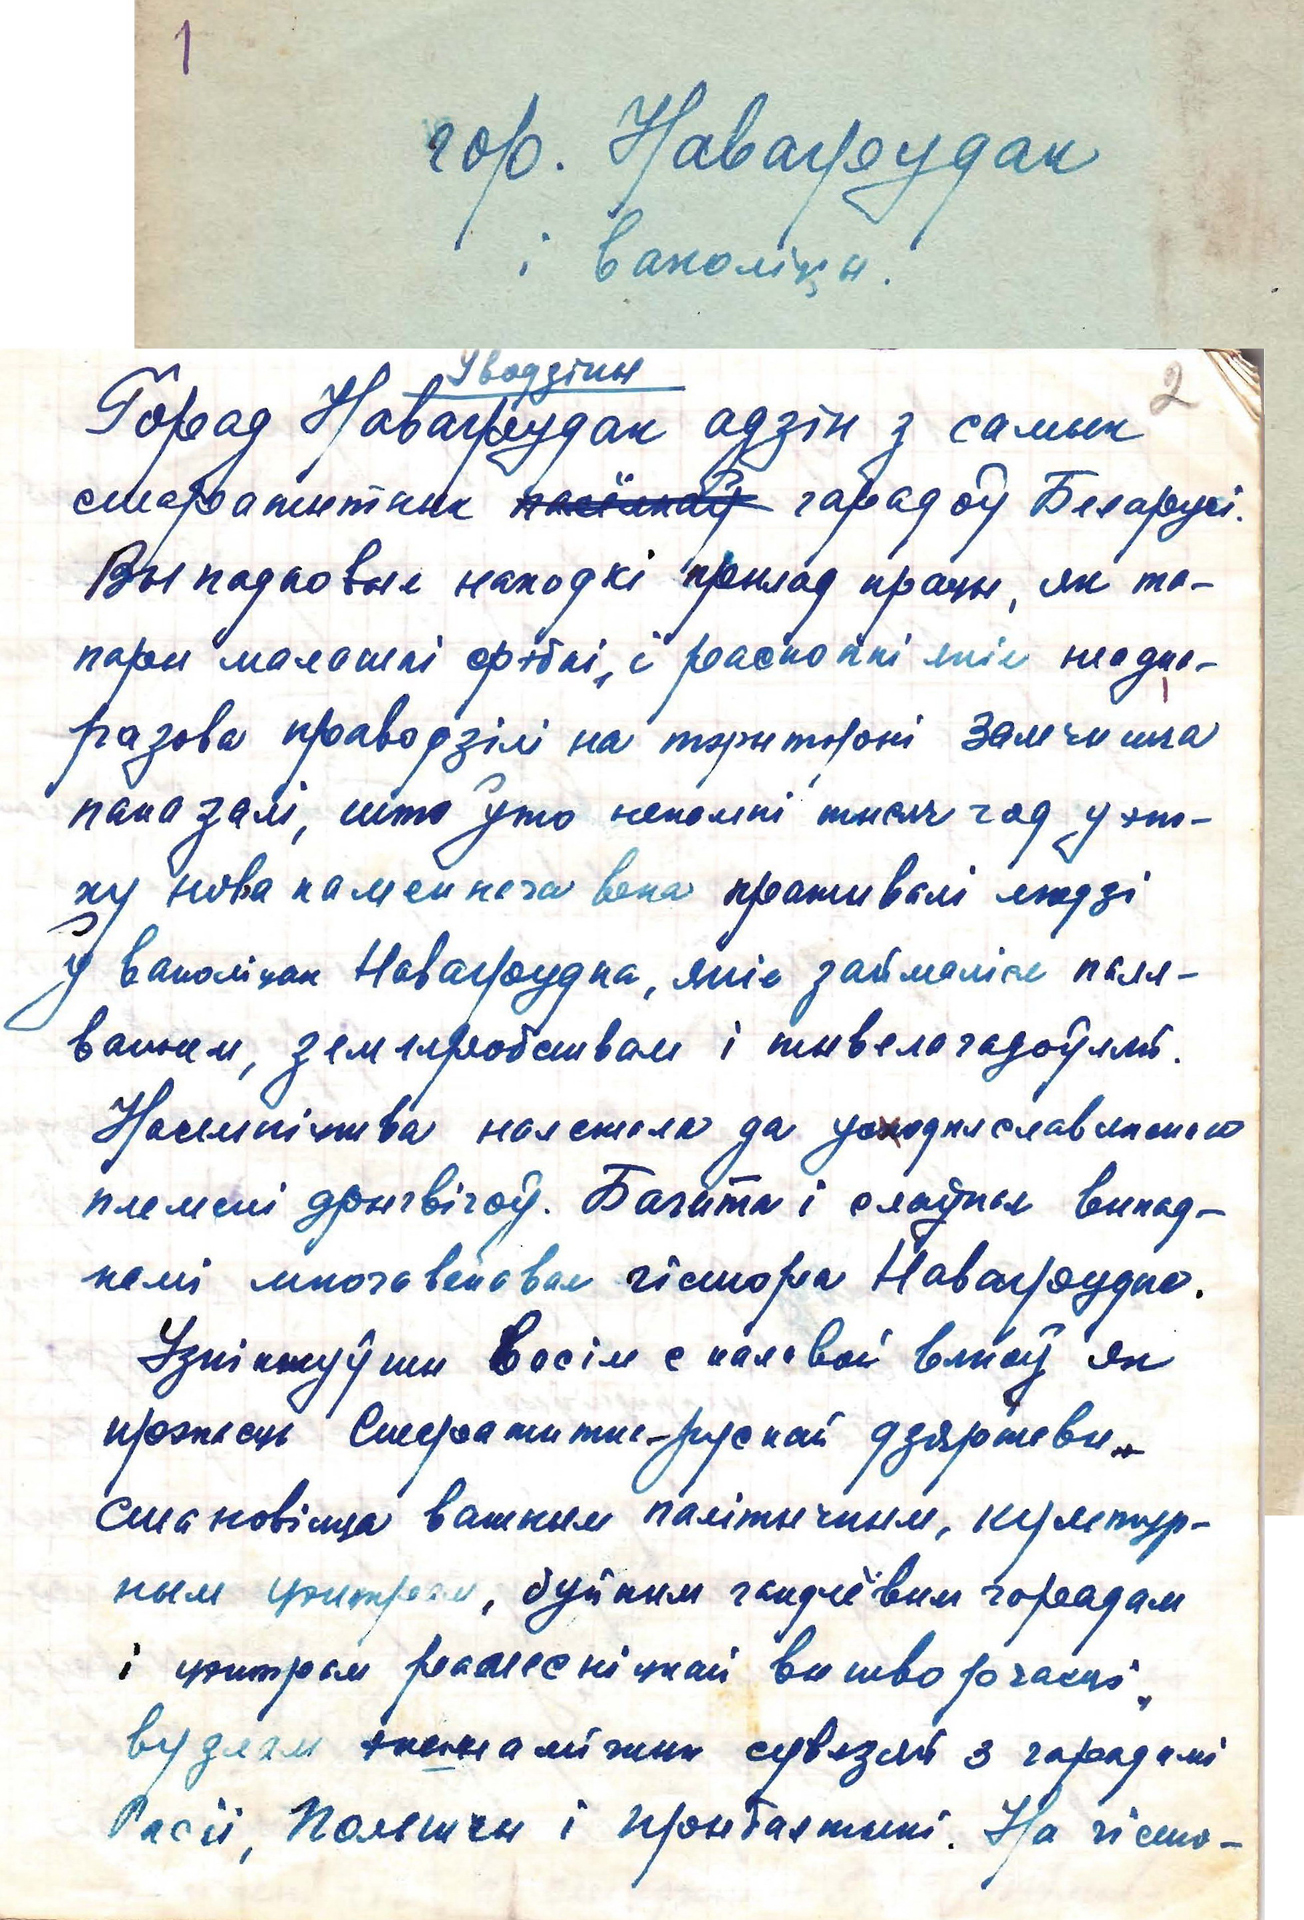 1
гор. Навагрудак
і ваколіцы.
Уводзіны
2
Горад Навагрудак адзін з самых
старажытных пасёлкаў гарадоў Беларусі.
Выпадковыя находкі прылад працы, як та-
пары малаткі сярпы, і раскопкі якія неадна-
разова праводзілі на тэрыторыі Замчышча
паказалі, што ўжо некалькі тысяч год у эпо-
ху новакаменнага века пражывалі людзі
ў ваколіцах Навагрудка, якія займаліся паля-
ваннем, земляробствам і жывёлагадоўляй.
Насельніцтва належала да усходнеславянскага
племені дрыгвічоў. Багата і слаўная выпад-
камі многавекавая гісторыя Навагрудка.
Узнікнуўшы восім сталеццяў як
крэпасць Старажытна-рускай дзяржавы
становіцца важным палітычным, культур-
ным цэнтрам, буйным гандлёвым горадам
і цэнтрам рамесніцкай вытворчасці,
вузлом эканамічных сувязей з гарадамі
Расіі, Польшчы і Прыбалтыкі. На гісто-